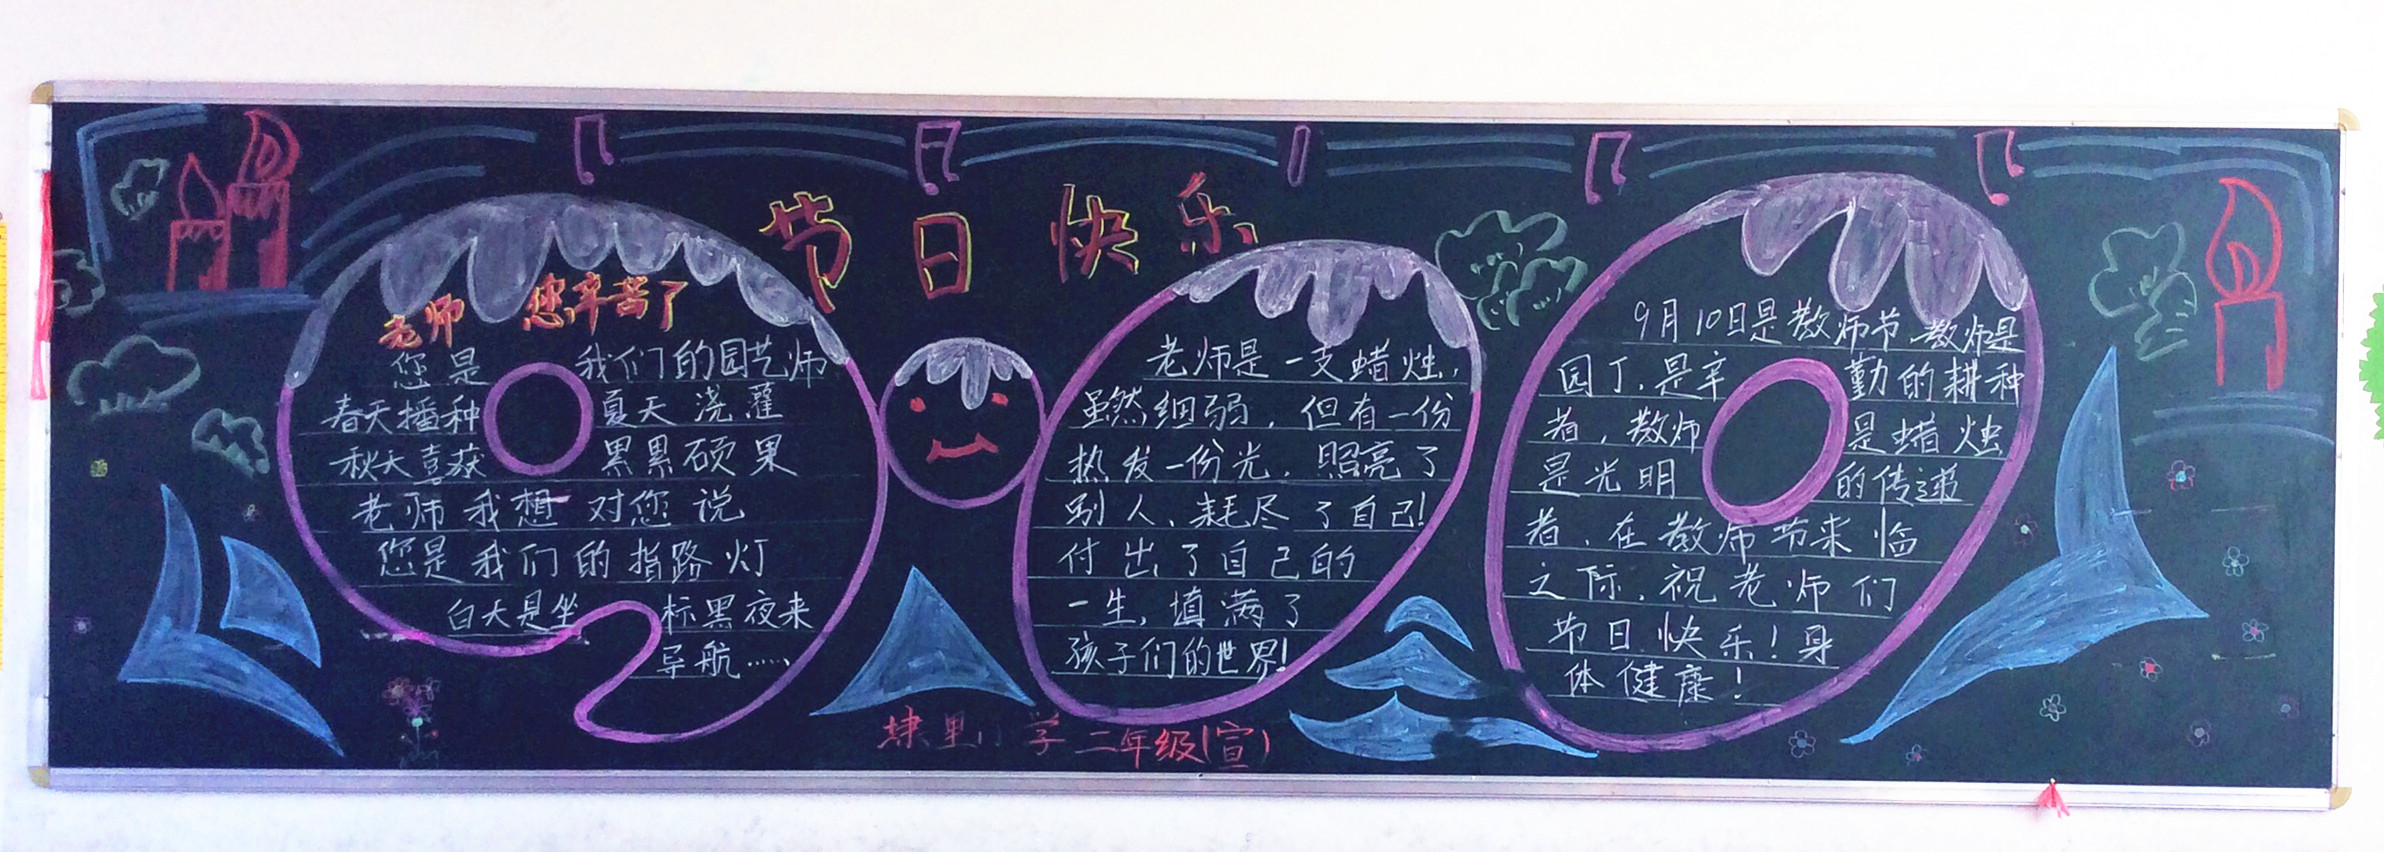 节日快乐
老师 您辛苦了
您是 我们的园艺师
春天播种 夏天浇灌
秋天喜获 累累硕果
老师我想对您说
您是我们的指路灯
白天是坐 标黑夜来
导航……
老师是一支蜡烛，
虽然细弱，但有一份
热发一份光，照亮了
别人，耗尽了自己！
付出了自己的
一生，填满了
孩子们的世界！
9月10日是教师节，教师是
园丁，是辛 勤的耕种
者，教师 是蜡烛
是光明 的传递
者，在教师节来临
之际，祝老师们
节日快乐！身
体健康！
埭里小学二年级(宣)